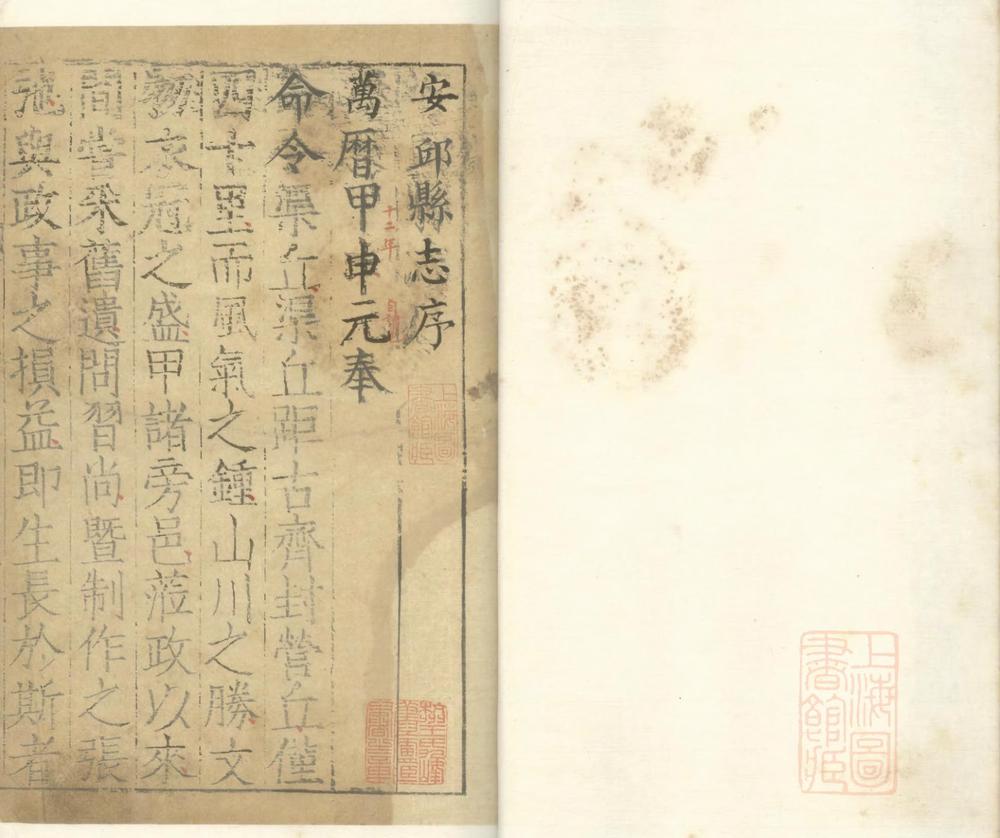 安邱縣志序
十二年
萬暦甲申元奉
命令渠丘渠丘距古齊封營丘僅
四十里而風氣之鍾山川之勝文
物衣冠之盛甲諸旁邑蒞政以來
間嘗采舊遺問習尚暨制作之張
弛與政事之損益即生長於斯者
上海圖書館藏
上海圖書館藏